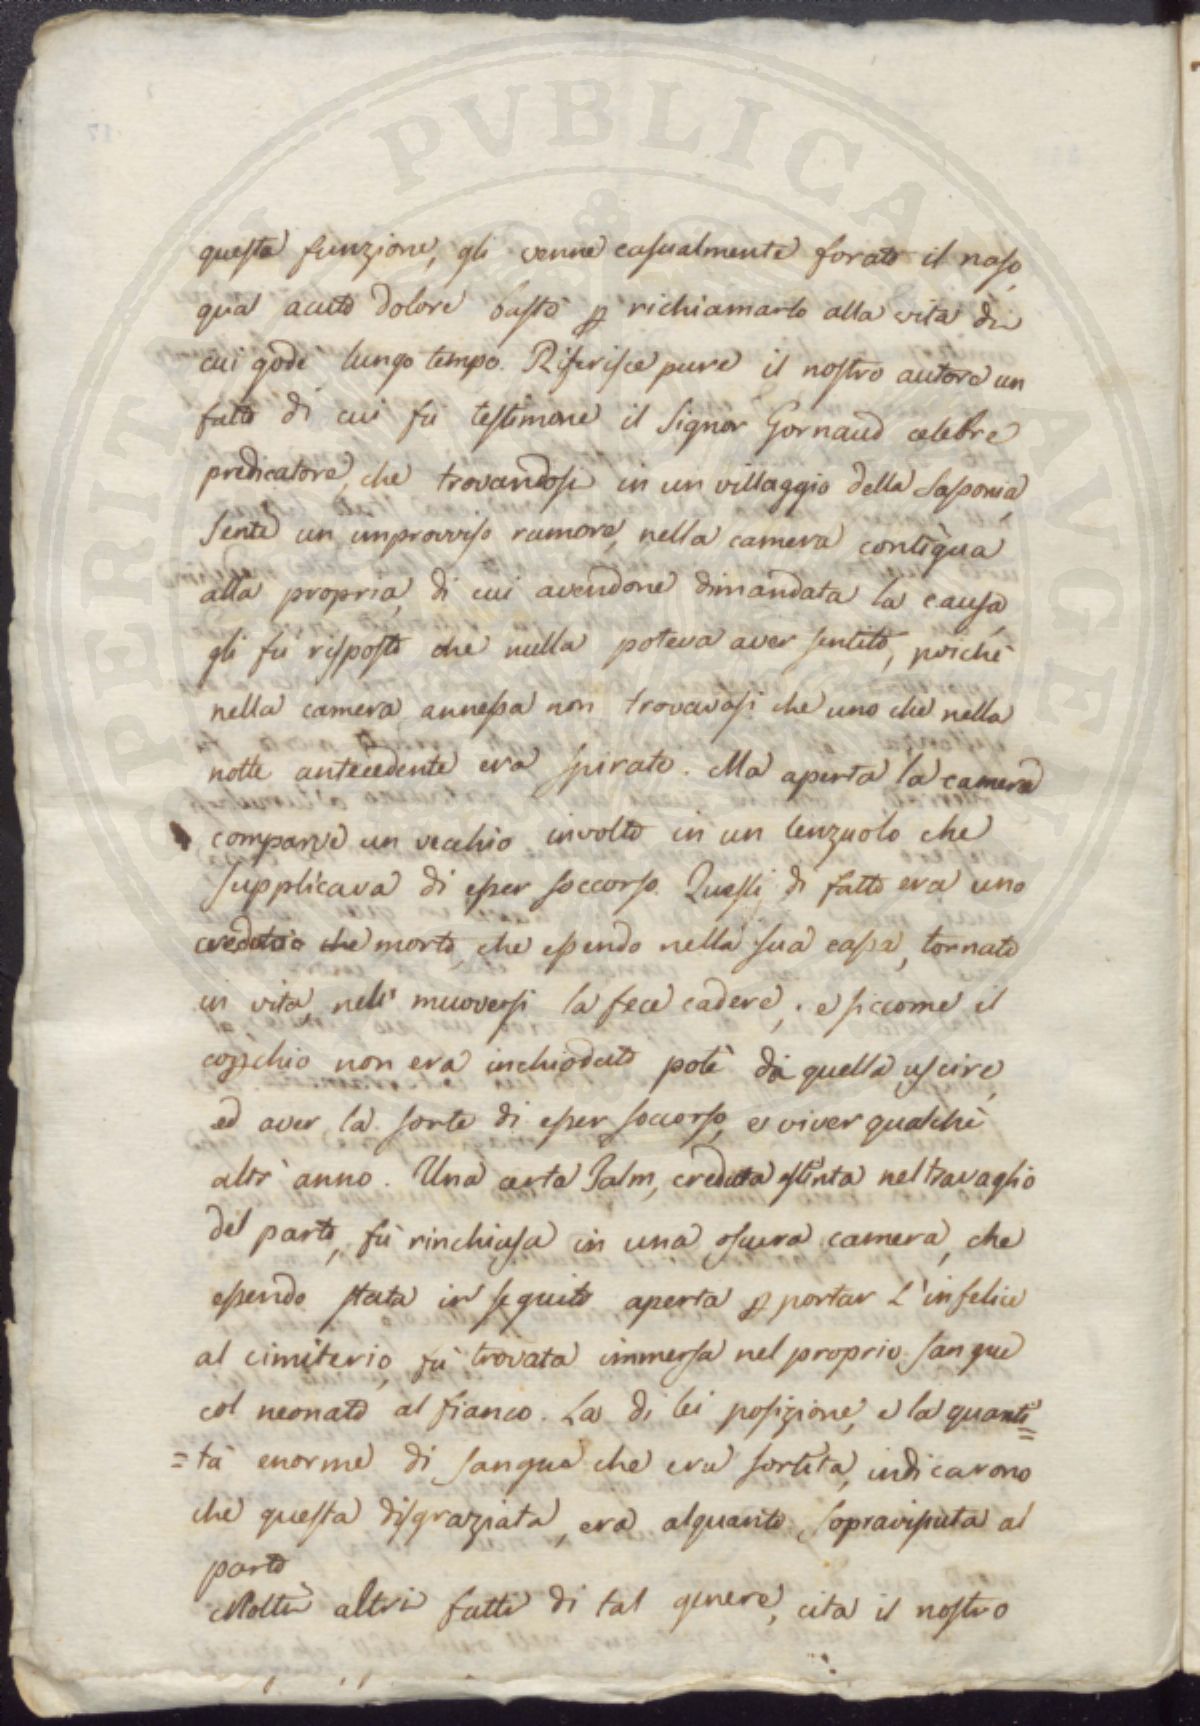 PERITAN PVBLICAM AVGENT
questa funzione, gli venne casualmente forato il naso,
qual acuto dolore bastò p richiamarlo alla vita di
cui godè lungo tempo. Riferisce pure il nostro autore un
fatto di cui fu testimone il Signor Gornaud celebre
predicatore, che trovandosi in un villaggio della Sassonia,
sentì un improvviso rumore, nella camera contigua
alla propria, di cui avendone dimandata la causa,
gli fu risposto che nulla poteva aver sentito, poichè
nella camera annessa non trovavasi che uno che nella
notte antecedente era spirato. Ma aperta la camera
comparve un vecchio involto in un lenzuolo che
supplicava di esser soccorso. Questi di fatto era uno
creduto che morto, che essendo nella sua cassa, tornato
in vita, nell' muoversi la fece cadere, e siccome il
coperchio non era inchiodato potè da quella uscire,
ed aver la sorte di esser soccorso, e viver qualche
altr' anno. Una certa Palm, creduta estinta nel travaglio
del parto, fù rinchiusa in una oscura camera, che
essendo stata in seguito aperta p portar l'infelice
al cimiterio, fù trovata immersa nel proprio sangue
col neonato al fianco. La di lei posizione, e la quanti=
=tà enorme di sangue che era sortita, indicarono
che questa disgraziata, era alquanto sopravissuta al
parto
Molti altri fatti di tal genere, cita il nostro